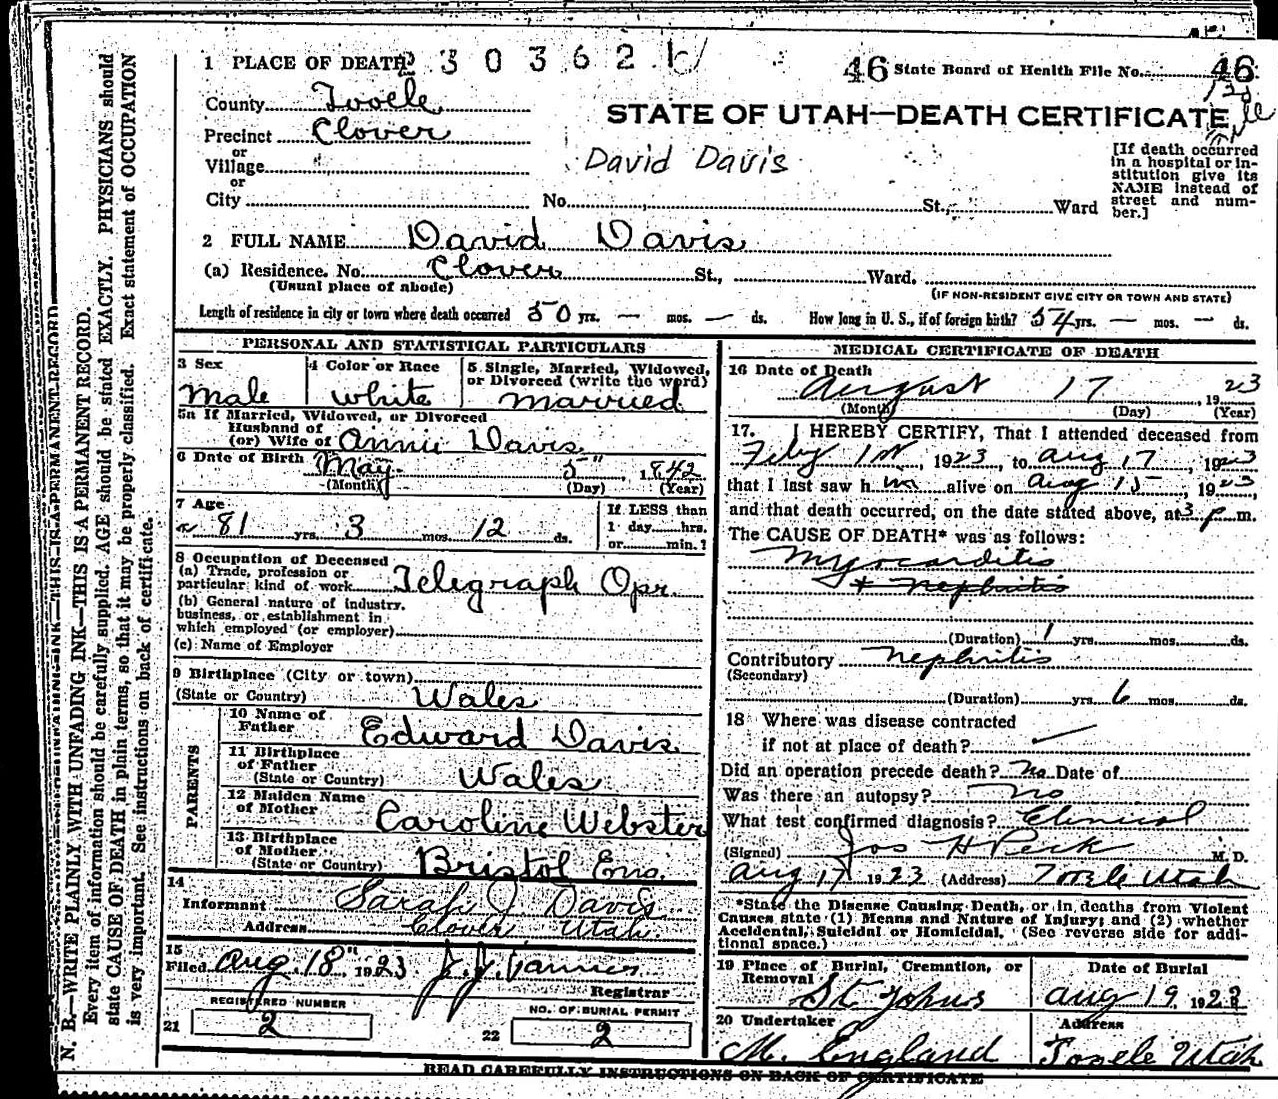 1 PLACE OF DEATH 3 0 3 6 2 46 State Board of Health File No. 46
County Tooele
STATE OF UTAH—DEATH CERTIFICATE
Precinct Clover
or
Village
David Davis
or
City No. St., Ward
[If death occurred
in a hospital or in-
stitution give its
NAME instead of
street and num-
ber.]
2 FULL NAME David Davis
(a) Residence. No. Clover St., Ward.
(Usual place of abode)
(IF NON-RESIDENT GIVE CITY OR TOWN AND STATE)
Length of residence in city or town where death occurred 50 yrs. — mos. — ds. How long in U. S., if of foreign birth? 54 yrs. — mos. — ds.
PERSONAL AND STATISTICAL PARTICULARS
3 Sex
Male
4 Color or Race
White
5 Single, Married, Widowed,
or Divorced (write the word)
Married
5a If Married, Widowed, or Divorced
Husband of
(or) Wife of Annie Davis
6 Date of Birth May 5" 1842
(Month) (Day) (Year)
7 Age
81 yrs. 3 mos. 12 ds.
If LESS than
1 day hrs.
or min.?
8 Occupation of Deceased
(a) Trade, profession or
particular kind of work Telegraph Opr.
(b) General nature of industry,
business, or establishment in
which employed (or employer)
(c) Name of Employer
9 Birthplace (City or town)
(State or Country) Wales
PARENTS
10 Name of
Father Edward Davis
11 Birthplace
of Father
(State or Country) Wales
12 Maiden Name
of Mother Caroline Webster
13 Birthplace
of Mother
(State or Country) Bristol Eng.
14
Informant Sarah J Davis
Address Clover Utah
15
Filed Aug 18" 1923
Registrar
REGISTERED NUMBER
21 2
NO. OF BURIAL PERMIT
22 2
MEDICAL CERTIFICATE OF DEATH
16 Date of Death
August 17, 1923
(Month) (Day) (Year)
17. I HEREBY CERTIFY, That I attended deceased from
Feby 1st, 1923, to Aug 17, 1923
that I last saw him alive on Aug 15, 1923,
and that death occurred, on the date stated above, at 3 p m.
The CAUSE OF DEATH* was as follows:
Myocarditis
+ nephritis
(Duration) 1 yrs. mos. ds.
Contributory nephritis
(Secondary)
(Duration) yrs. 6 mos. ds.
18 Where was disease contracted
if not at place of death?
Did an operation precede death? No Date of
Was there an autopsy? No
What test confirmed diagnosis? Clinical
(Signed) Jos H Peck M. D.
Aug 17 1923 (Address) Tooele Utah
*State the Disease Causing Death, or in deaths from Violent
Causes state (1) Means and Nature of Injury; and (2) whether
Accidental, Suicidal or Homicidal. (See reverse side for addi-
tional space.)
19 Place of Burial, Cremation, or
Removal
St Johns
Date of Burial
Aug 19 1923
20 Undertaker
M. England
Address
Tooele Utah
READ CAREFULLY INSTRUCTIONS ON BACK OF CERTIFICATE
N. B.—WRITE PLAINLY WITH UNFADING INK—THIS IS A PERMANENT RECORD.
Every item of information should be carefully supplied. AGE should be stated EXACTLY. PHYSICIANS should
state CAUSE OF DEATH in plain terms, so that it may be properly classified. Exact statement of OCCUPATION
is very important. See instructions on back of certificate.